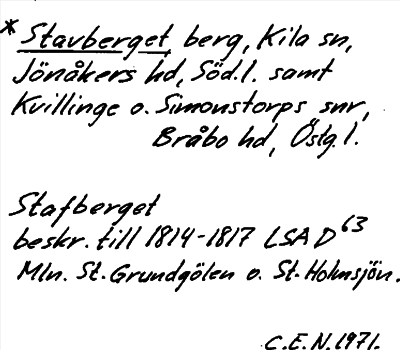 * Stavberget berg, Kila sn,
Jönåkers hd, Söd.l. samt
Kvillinge o. Simonstorps snr,
Bråbo hd, Östg.l.
Stafberget
beskr. till 1814-1817 LSA D 63
Mln. St. Grundgölen o. St. Holmsjön.
C.E.N. 1971.